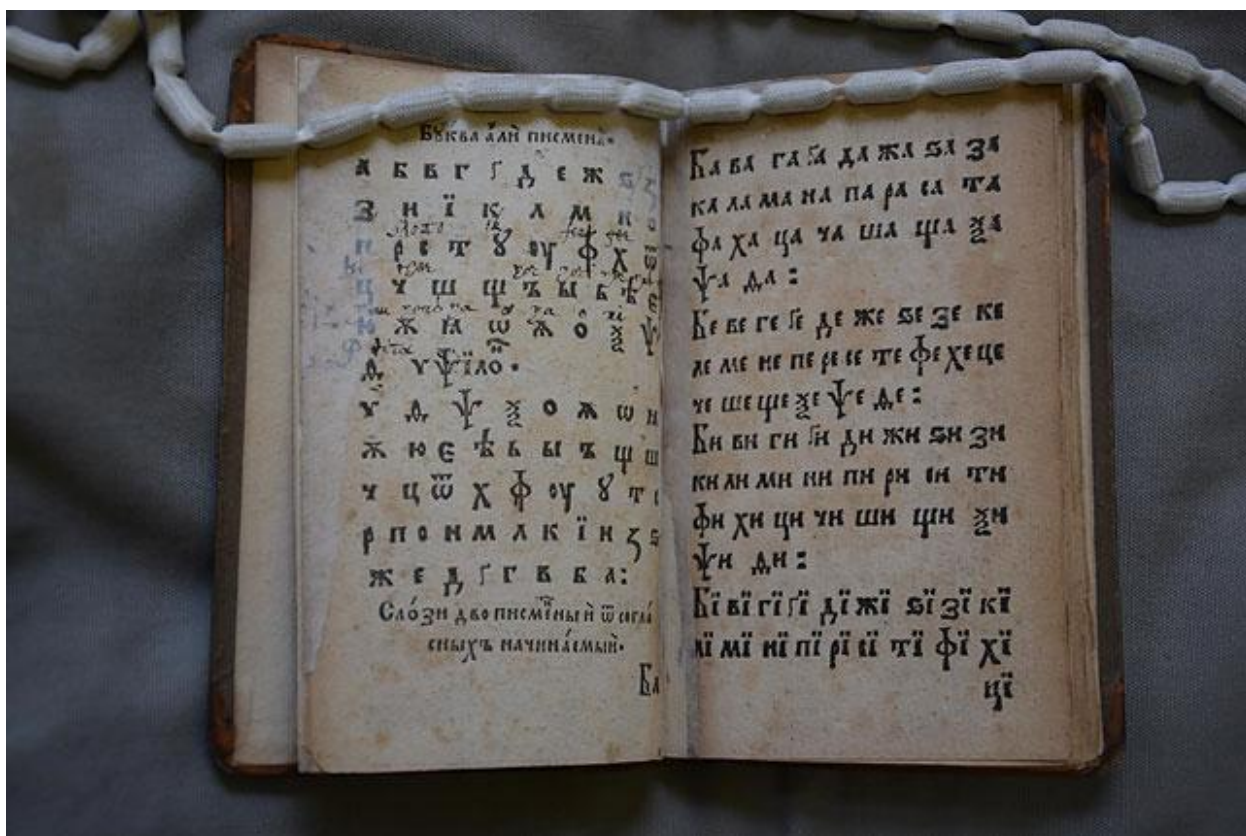 Бꙋ́ква а҆́ли писмена̀.
а б в г ґ д е ж ѕ ꙁ
З и ї к л м н о
п р с т ꙋ оу ф х ѿ
ц ч ш щ ъ ы ь ѣ є
ю ѫ ѩ ѡ ѫ о ѯ ѱ
ѳ ѵ
ѵ ѳ ѱ ѯ о ѫ ѡ н
ѫ ю є ѣ ь ы ъ щ ш
ч ц ѿ х ф оу ꙋ т с
р п о н м л к ї и ꙁ ѕ
ж е д ґ г в б а:
Сло́зи двописме́ныѝ ѿ согла́
сныхъ начина́емыѝ.
Ба
Ба ва га ґа да жа ѕа за
ка ла ма на па ра са та
фа ха ца ча ша ща ѯа
ѱа ѳа:
Бе ве ге ґе де же ѕе зе ке
ле ме не пе ре се те фе хе це
че ше ще ѯе ѱе ѳе:
Би ви ги ґи ди жи ѕи зи
ки ли ми ни пи ри си ти
фи хи ци чи ши щи ѯи
ѱи ѳи:
Бї вї гї ґї дї жї ѕї зї кї
лї мї нї пї рї сї тї фї хї
цї